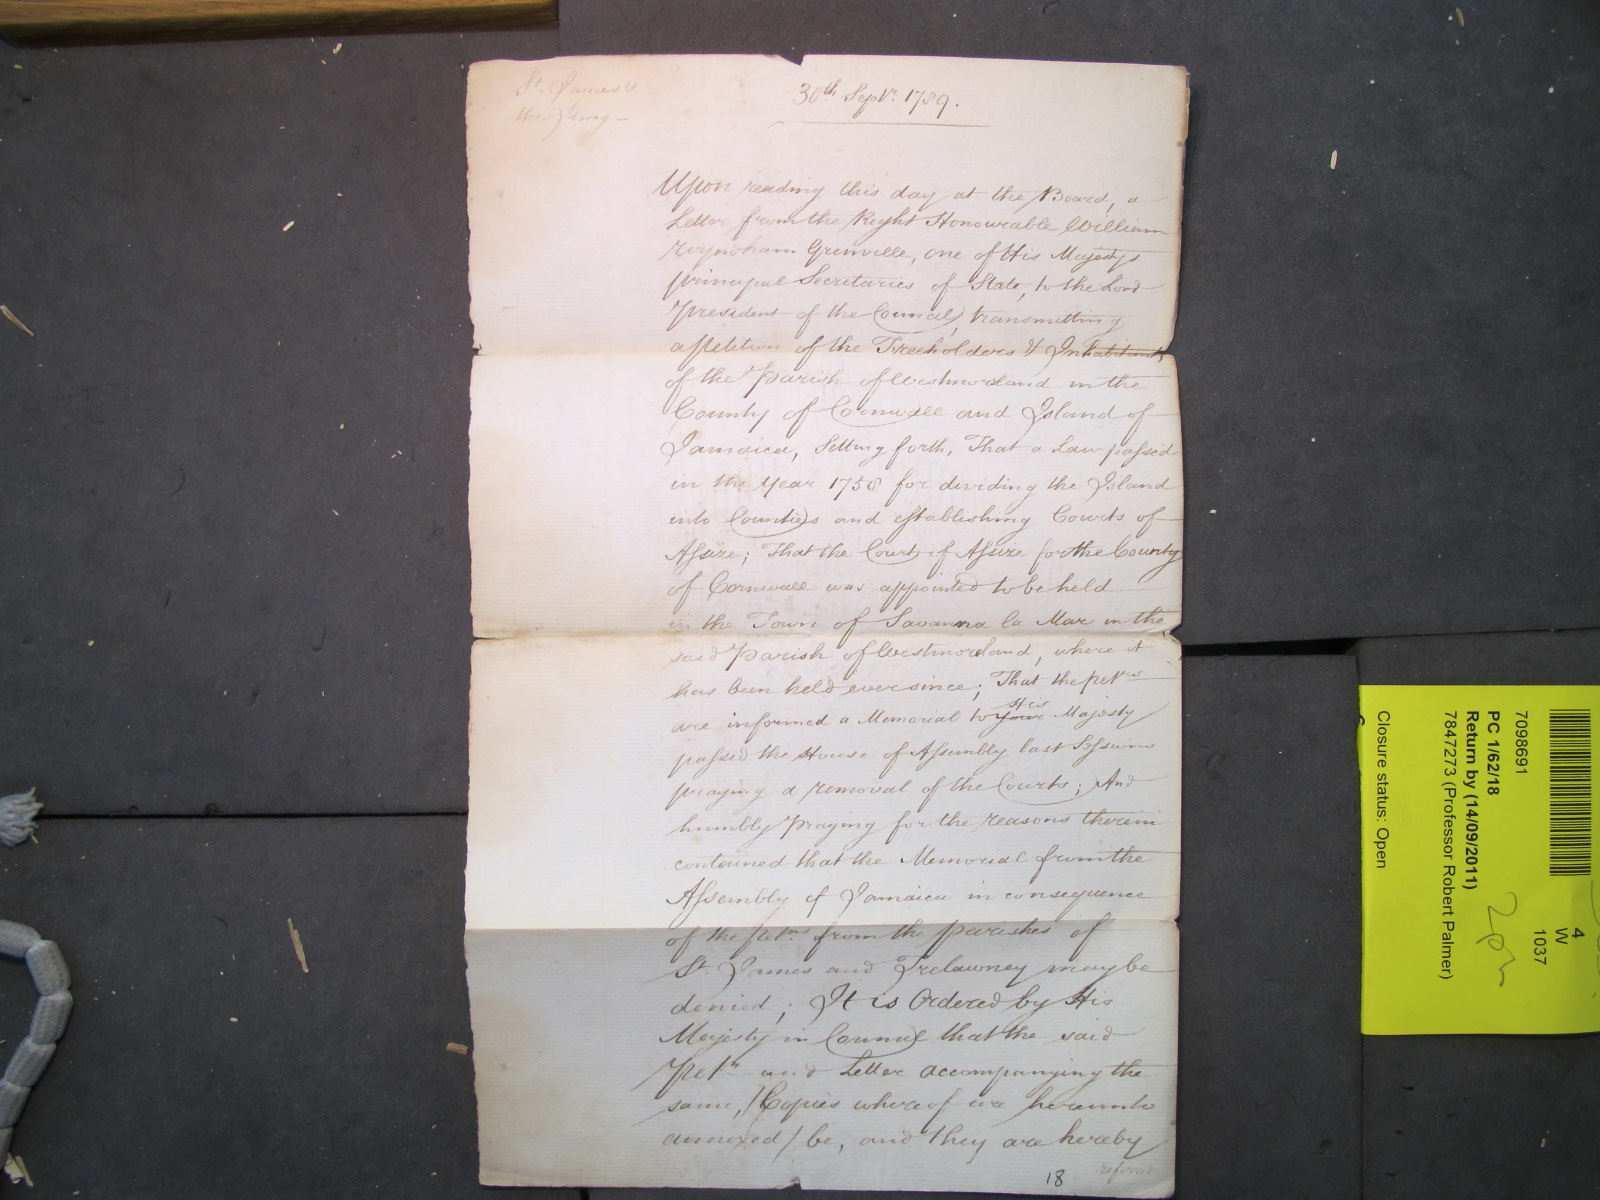 St. James's
the King —
30th Septr. 1789.
Upon reading this day at the Board, a
Letter from the Right Honourable William
Wyndham Grenville, one of His Majestys
principal Secretaries of State, to the Lord
President of the Council, transmitting
a Petition of the Freeholders & Inhabitants
of the Parish of Westmoreland in the
County of Cornwall and Island of
Jamaica, Setting forth, That a Law passed
in the Year 1758 for dividing the Island
into Counties and establishing Courts of
Assize; that the Court of Assize for the County
of Cornwall was appointed to be held
in the Town of Savanna la Mar in the
said Parish of Westmoreland, where it
has been held ever since; That the petrs
are informed a Memorial to your His Majesty
passed the House of Assembly last Sessions
praying a removal of the Courts; And
humbly Praying for the reasons therein
contained that the Memorial from the
Assembly of Jamaica in consequence
of the petns from the parishes of
St. James and Trelawney may be
denied; It is Ordered by His
Majesty in Council that the said
Petn and Letter accompanying the
same, /Copies whereof are hereunto
annexed/ be, and they are hereby
referred
18
7098691
PC 1/62/18
Return by (14/09/2011)
7847273 (Professor Robert Palmer)
Closure status: Open
4
W
1037